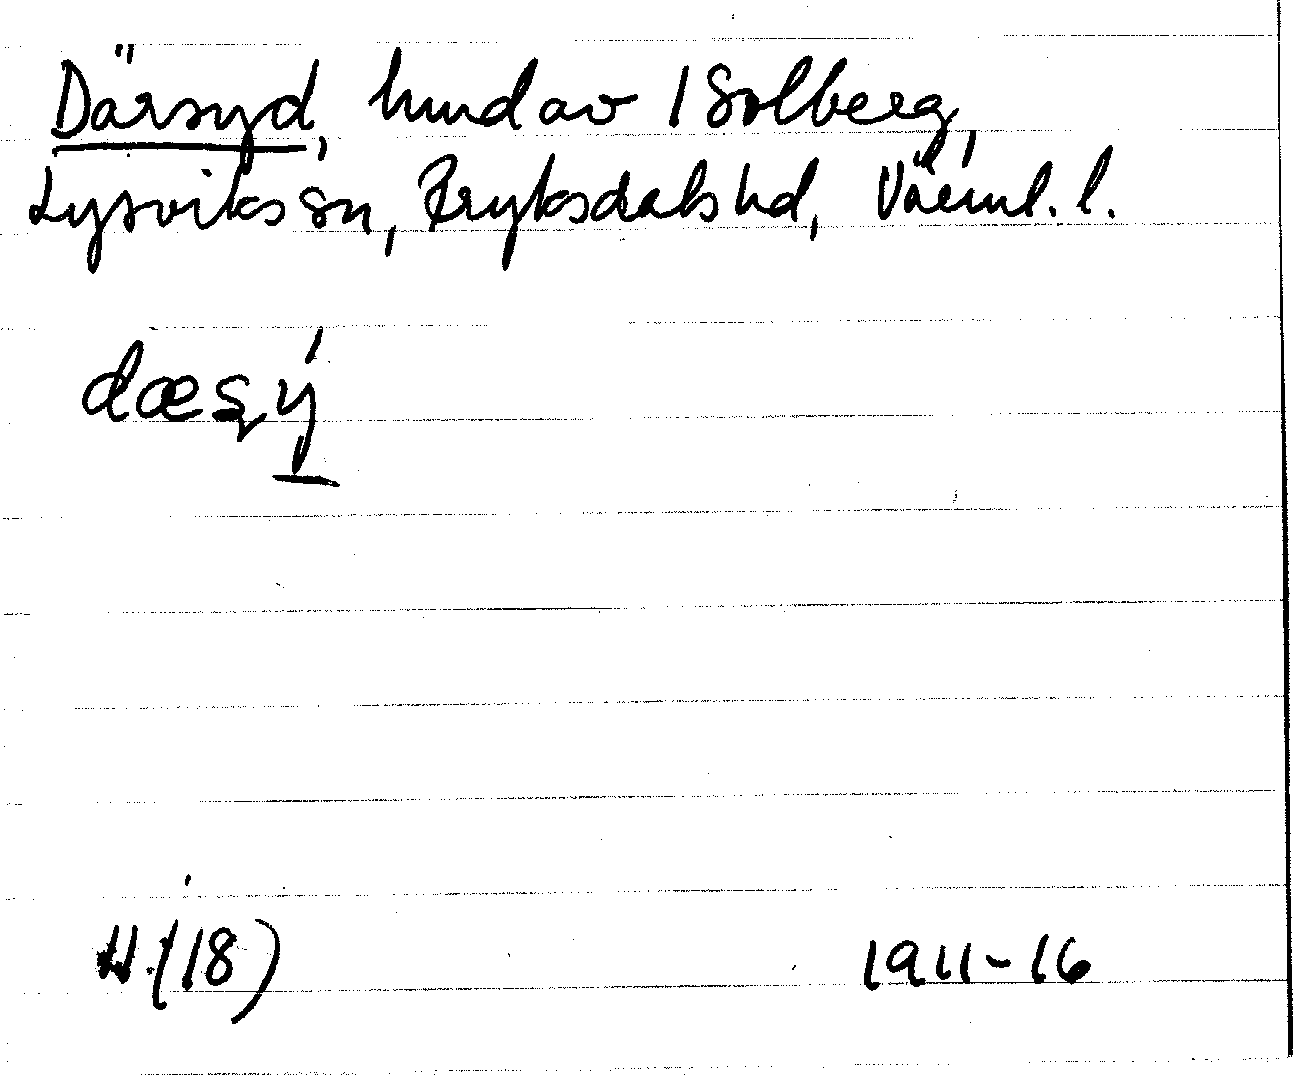 Därsyd, hmd av 1 Solberg,
Lysviks sn, Fryksdals hd, Värml. l.
dæsý
H. (18)
1911-16